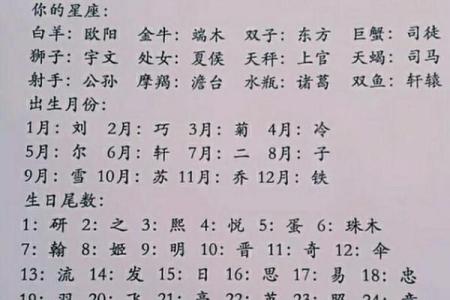 你的星座：
白羊：欧阳 金牛：端木 双子：东方 巨蟹：司徒
狮子：宇文 处女：夏侯 天秤：上官 天蝎：司马
射手：公孙 摩羯：澹台 水瓶：诸葛 双鱼：轩辕
出生月份：
1月：刘 2月：巧 3月：菊 4月：冷
5月：尔 6月：轩 7月：二 8月：子
9月：雪 10月：苏 11月：乔 12月：铁
生日尾数：
1：研 2：之 3：熙 4：悦 5：蛋 6：珠木
7：翰 8：姬 9：明 10：晋 11：奇 12：伞
13：流 14：发 15：日 16：思 17：易 18：忠